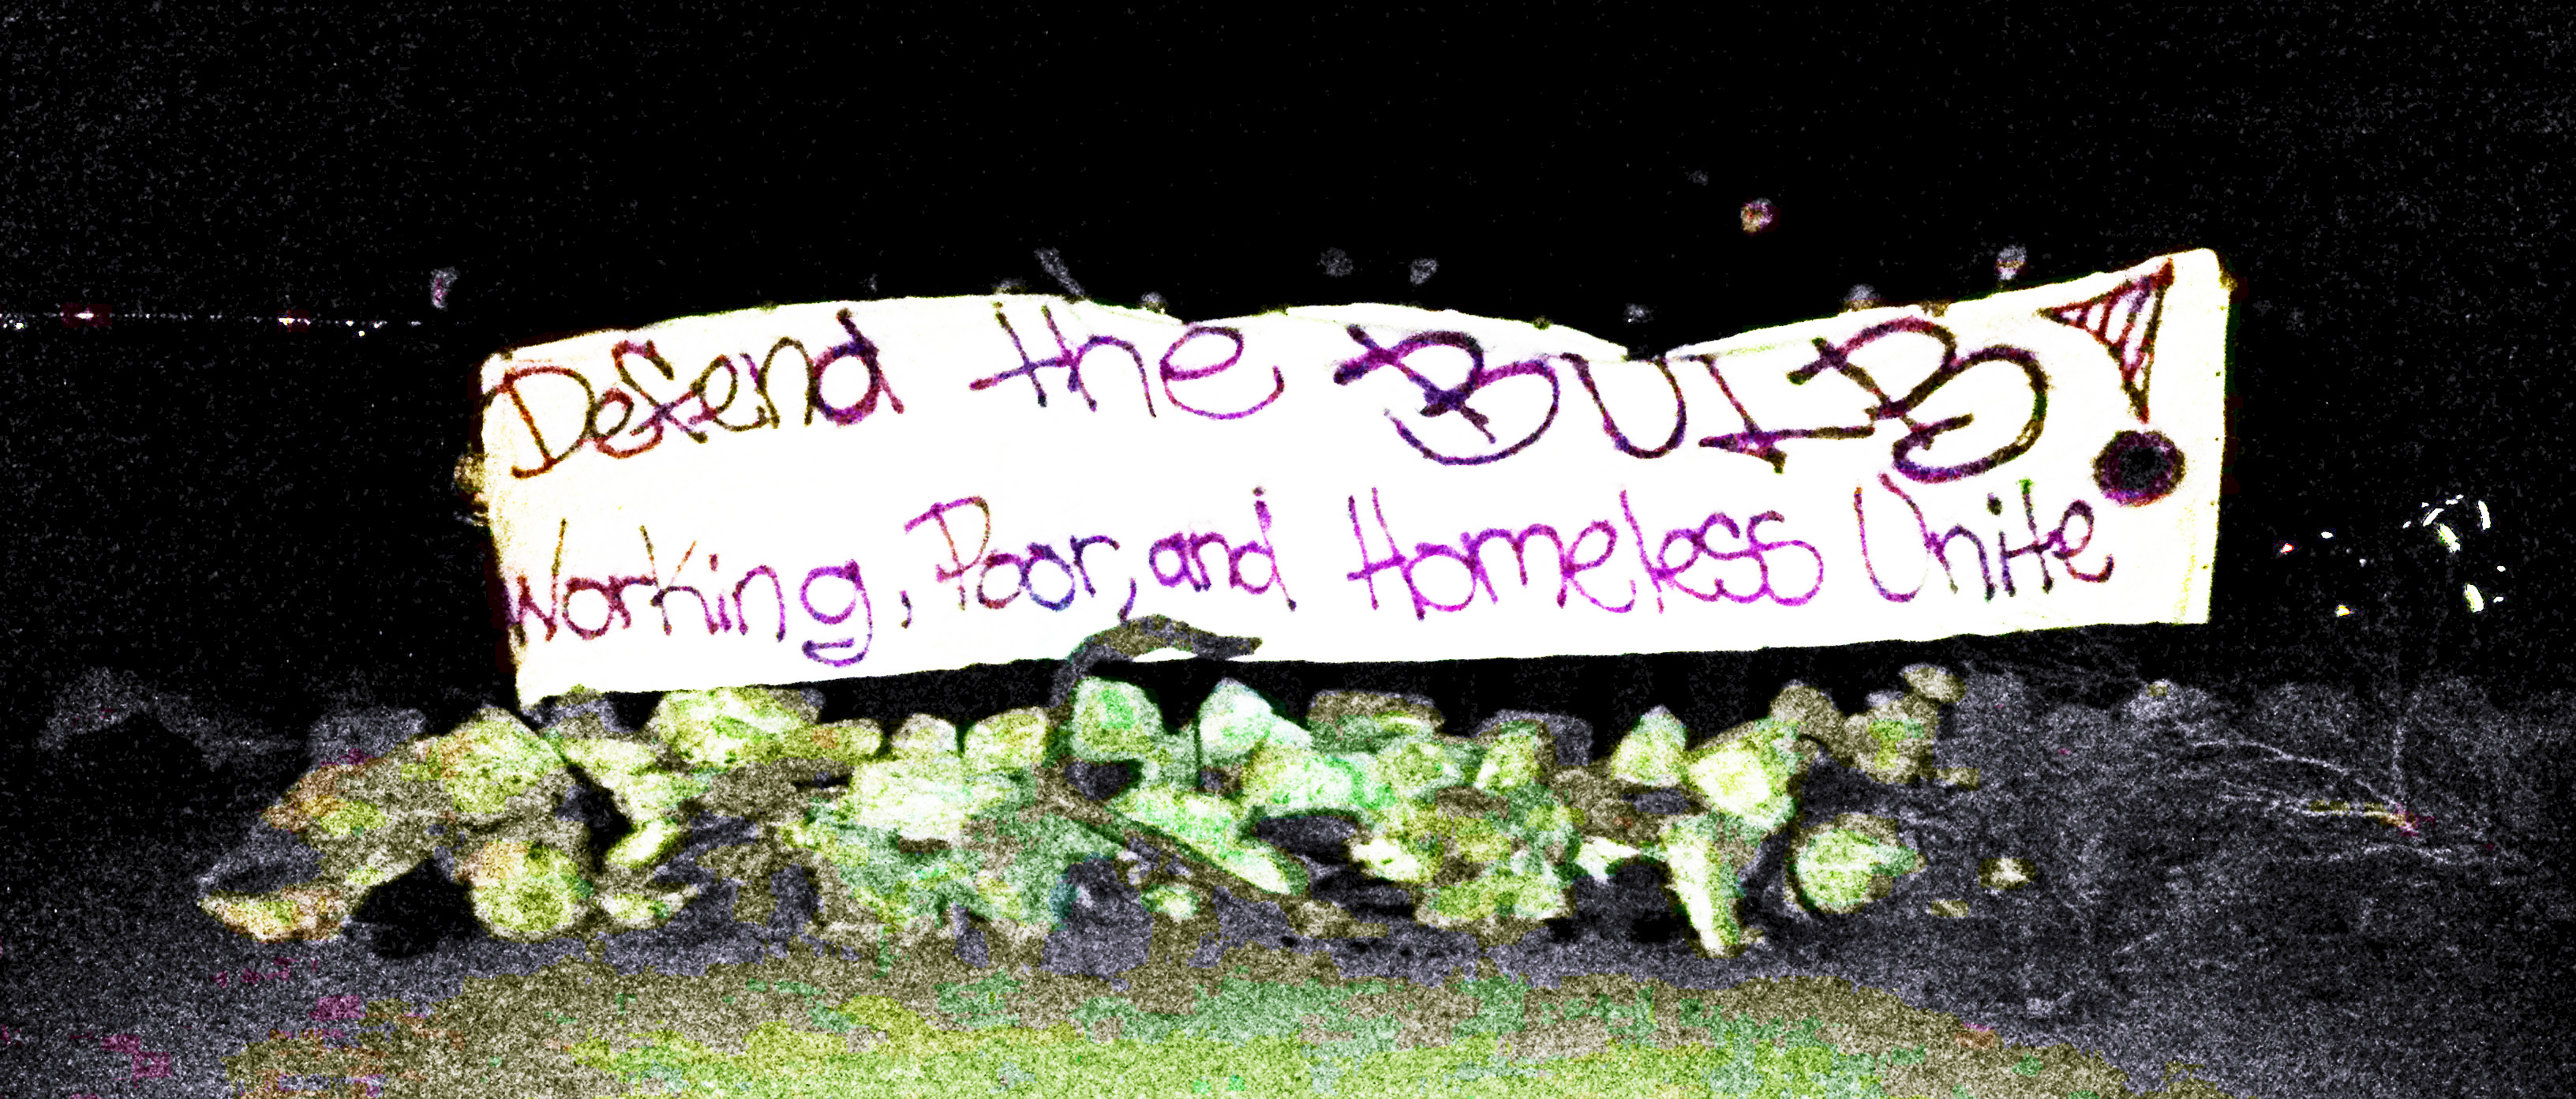 Defend the BULB!
Working, Poor, and Homeless Unite